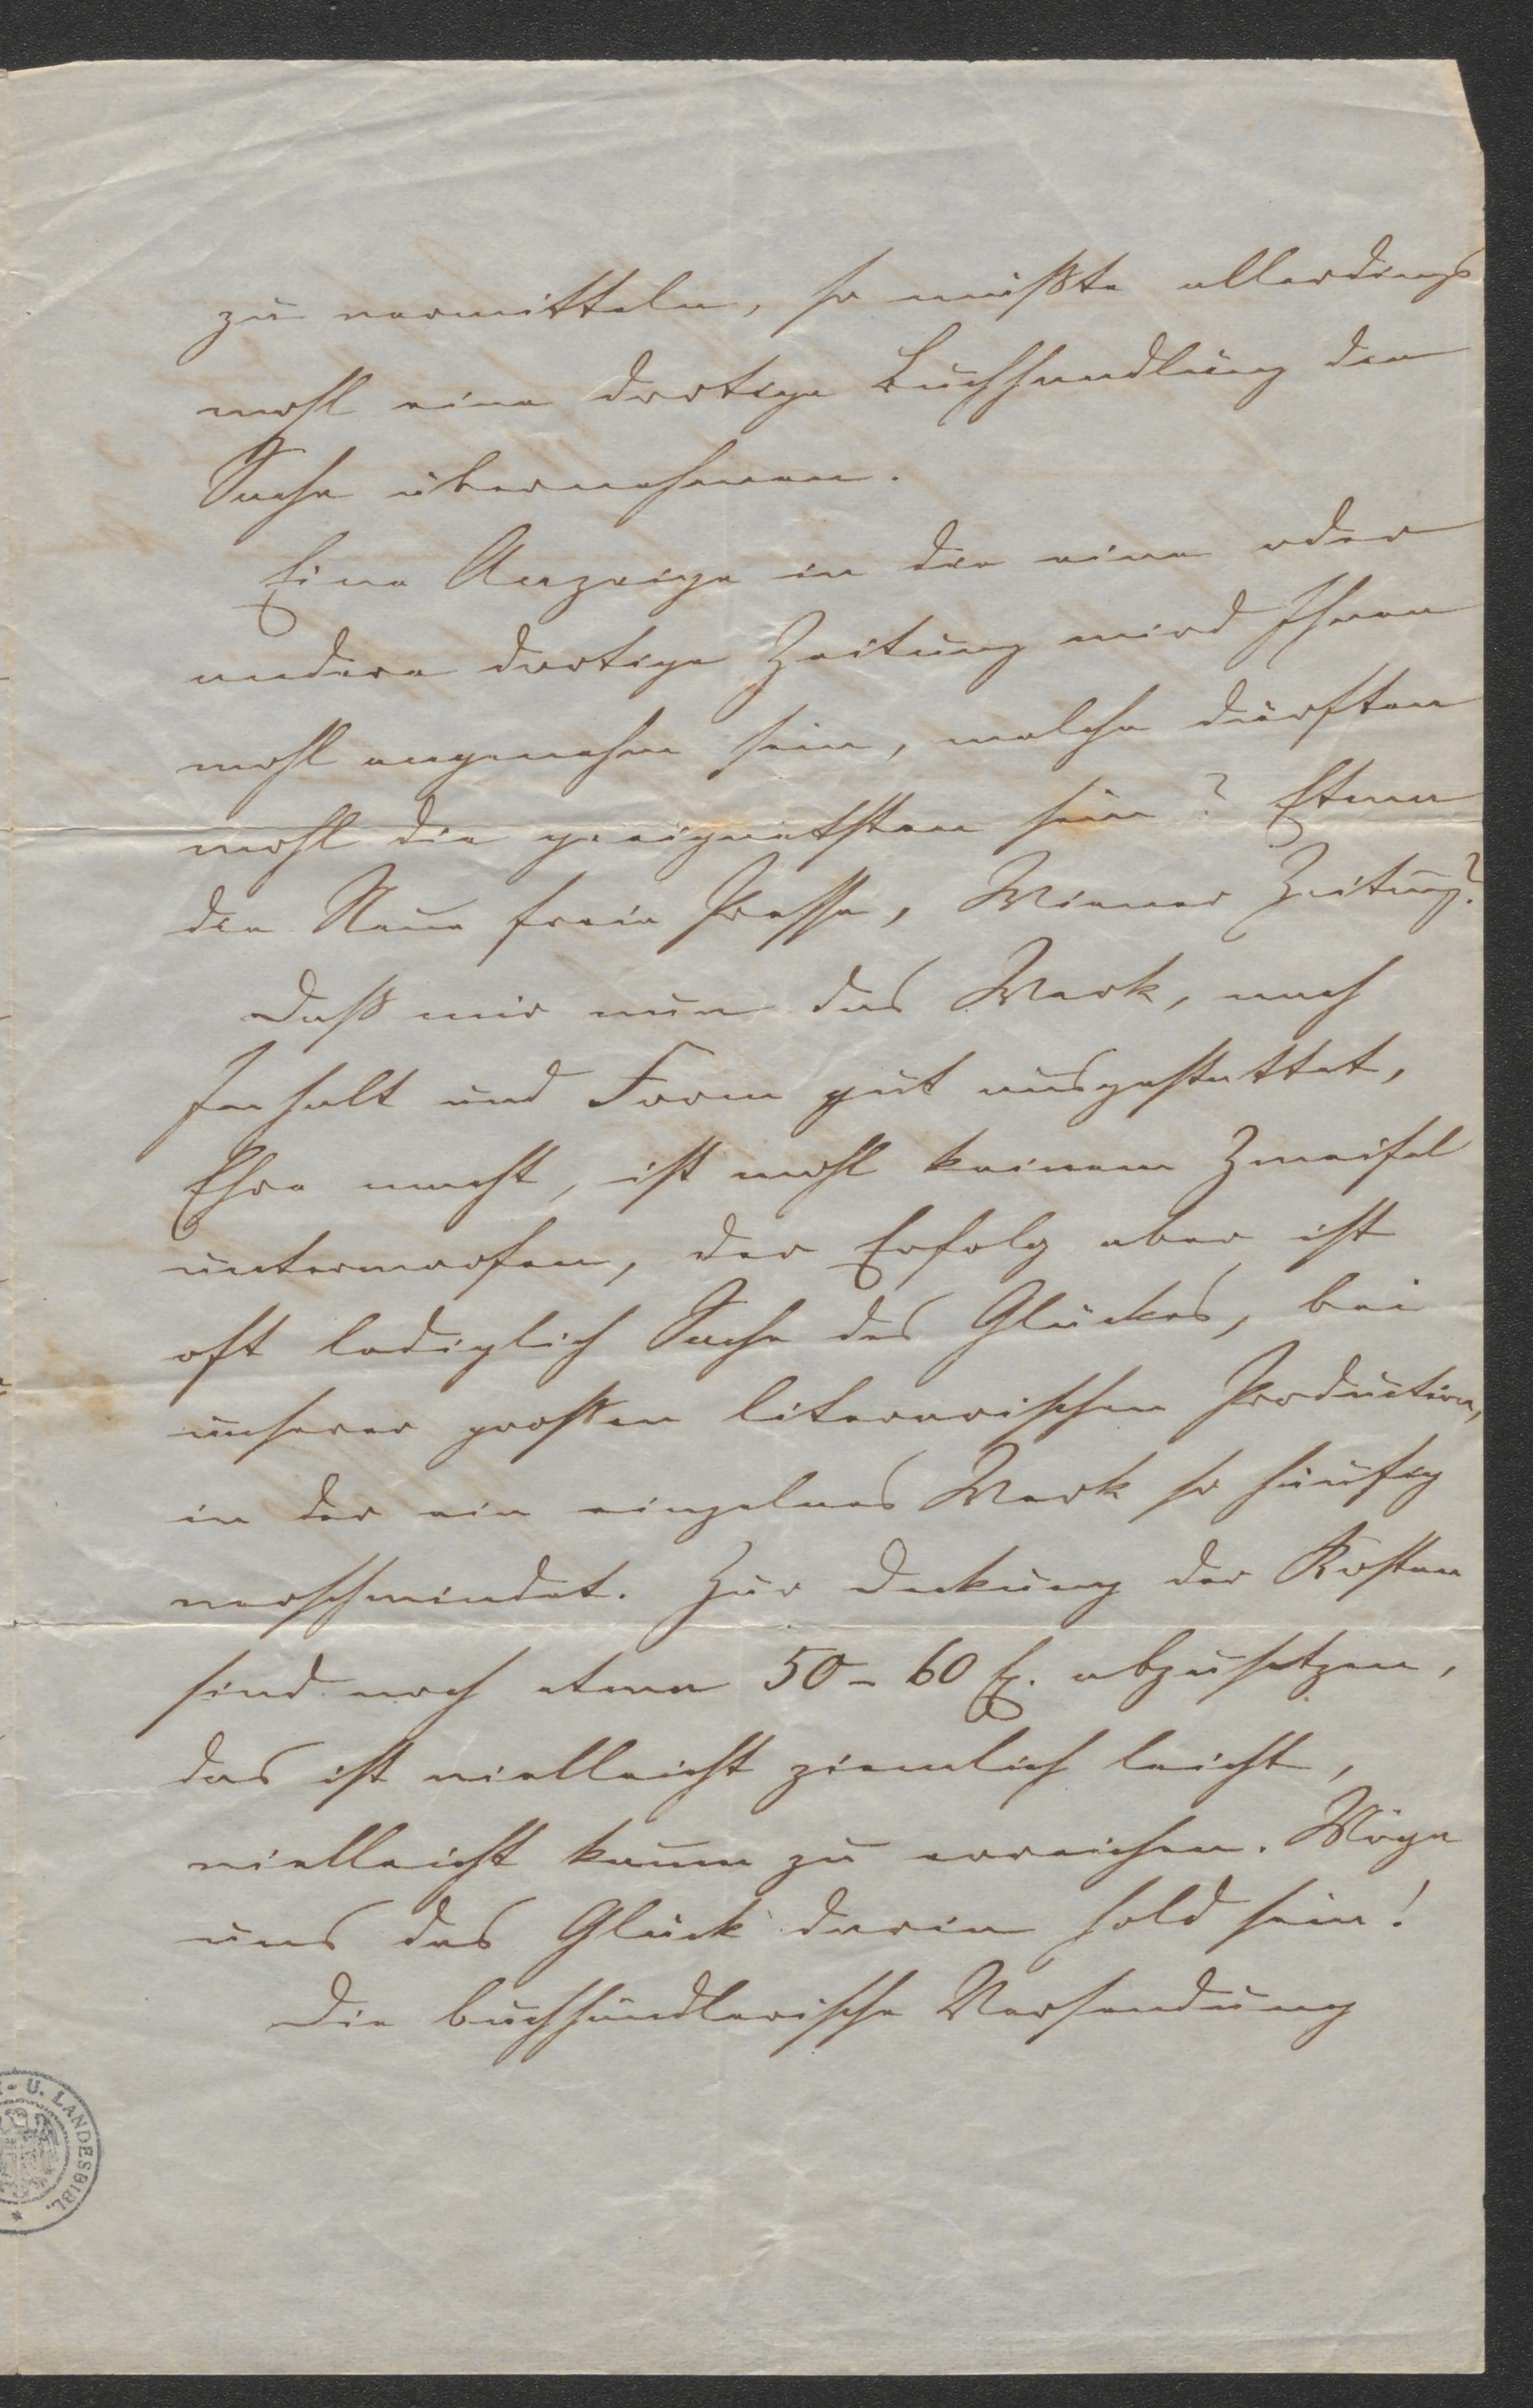 zu vermitteln, so müßte allerdings
wohl eine dortige Buchhandlung die
Sache übernehmen.
Eine Anzeige in die eine oder
andere dortige Zeitung wird Ihnen
wohl angenehm sein, welche dürften
wohl die geeignetsten sein? Etwa
die Neue freie Presse, Wiener Zeitung?
Daß mir nun das Werk, nach
Inhalt und Form gut ausgestattet,
Ehre macht, ist wohl keinem Zweifel
unterworfen, der Erfolg aber ist
oft lediglich Sache des Glückes, bei
unserer großen literarischen Production,
in der ein einzelnes Werk so häufig
verschwindet. Zur Deckung der Kosten
sind noch etwa 50-60 Ex. abzusetzen,
das ist vielleicht ziemlich leicht,
vielleicht kaum zu erreichen. Möge
uns das Glück darin hold sein!
Die buchhändlerische Versendung
U. LANDESBIBL.